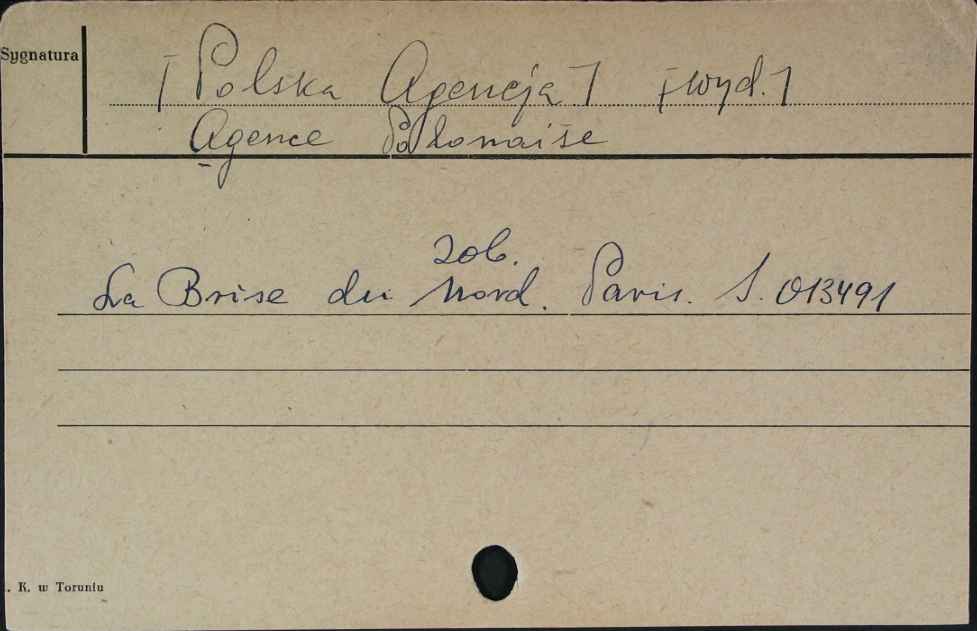 Sygnatura
[Polska Agencja] [wyd.]
Agence Polonaise
zob.
La Brise du Nord. Paris. S. 013491
. K. w Toruniu